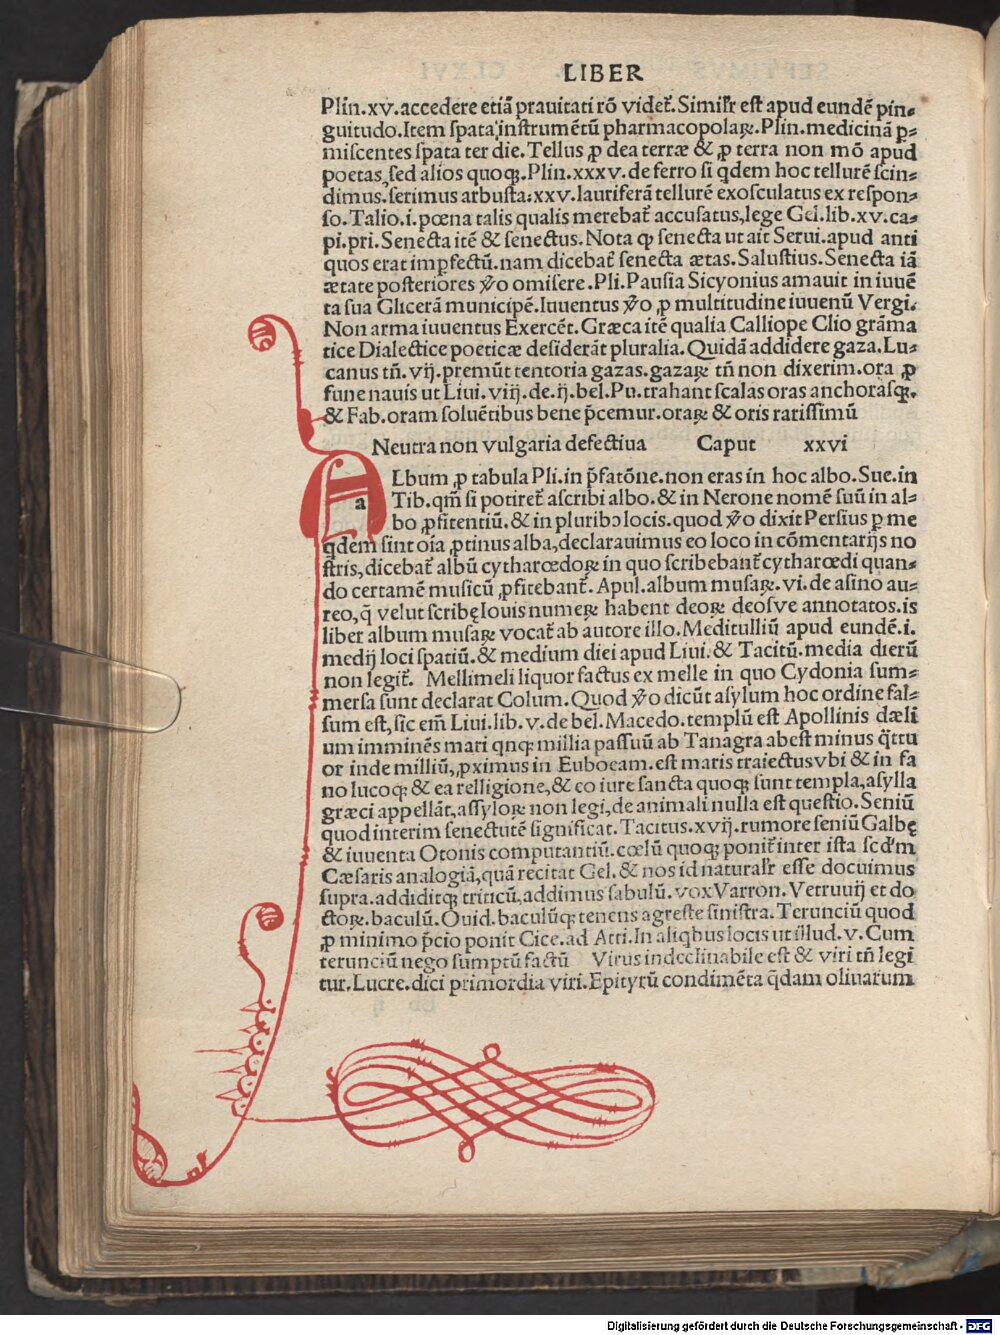 LIBER
Plin.xv.accedere etiā prauitati rō videt̄.Simil'r est apud eundē pin⸗
guitudo.Item spata instrumētū pharmacopolaꝝ.Plin.medicinā ꝑ⸗
miscentes spata ter die.Tellus ꝓ dea terræ & ꝓ terra non mō apud
poetas,sed alios quoqꝫ.Plin.xxxv.de ferro si qdem hoc tellurē scin⸗
dimus.serimus arbusta:xxv.lauriferā tellurē exosculatus ex respon⸗
so.Talio.i.pœna talis qualis merebat̄ accusatus,lege Gel.lib.xv.ca⸗
pi.pri.Senecta itē & senectus.Nota ꝙ senecta ut ait Serui.apud anti
quos erat imꝑfectū.nam dicebat̄ senecta ætas.Salustius.Senecta iā
ætate posteriores v̆o omisere.Pli.Pausia Sicyonius amauit in iuuē
ta sua Glicerā municipē.Iuuentus v̆o ꝓ multitudine iuuenū Vergi.
Non arma iuuentus Exercēt.Græca itē qualia Calliope Clio grāma
tice Dialectice poeticæ desiderāt pluralia.Quidā addidere gaza.Lu⸗
canus tn̄.vij.premūt tentoria gazas.gazaꝝ tn̄ non dixerim.ora ꝓ
fune nauis ut Liui.viij.de.ij.bel.Pu.trahant scalas oras anchorasqꝫ.
& Fab.oram soluētibus bene p̄cemur.oraꝝ & oris rarissimū
Neutra non vulgaria defectiua Caput xxvi
A
a
Lbum ꝓ tabula Pli.in p̄fatōne.non eras in hoc albo.Sue.in
Tib.qm̄ si potiret̄ ascribi albo.& in Nerone nomē suū in al⸗
bo ꝓfitentiū.& in pluribꝰ locis.quod v̆o dixit Persius ꝑ me
qdem sint oīa ꝓtinus alba,declarauimus eo loco in cōmentarijs no
stris,dicebat̄ albū cytharœdoꝝ in quo scribebant̄ cytharœdi quan⸗
do certamē musicū ꝓfitebant̄.Apul.album musaꝝ.vi.de asino au⸗
reo,q̄ velut scribę Iouis numeꝝ habent deoꝝ deosve annotatos.is
liber album musaꝝ vocat̄ ab autore illo.Meditulliū apud eundē.i.
medij loci spatiū.& medium diei apud Liui.& Tacitū.media dierū
non legit̄. Mellimeli liquor factus ex melle in quo Cydonia sum⸗
mersa sunt declarat Colum.Quod v̆o dicūt asylum hoc ordine fal⸗
sum est,sic em̄ Liui.lib.v.de bel.Macedo.templū est Apollinis dæli
um imminēs mari qnqꝫ millia passuū ab Tanagra abest minus q̄ttu
or inde milliū,ꝓximus in Euboeam.est maris traiectus vbi & in fa
no lucoqꝫ & ea relligione,& eo iure sancta quoqꝫ sunt templa,asylla
græci appellāt,assyloꝝ non legi,de animali nulla est questio.Seniū
quod interim senectutē significat.Tacitus.xvij.rumore seniū Galbę
& iuuenta Otonis computantiū.cœlū quoqꝫ ponit̄ inter ista scd'm
Cæsaris analogiā,quā recitat Gel.& nos id natural'r esse docuimus
supra.addiditqꝫ triticū,addimus sabulū.vox Varron.Vetruuij et do
ctoꝝ.baculū.Ouid.baculūqꝫ tenens agreste sinistra.Terunciū quod
ꝓ minimo p̄cio ponit Cice.ad Atti.In aliqbus locis ut illud.v.Cum
terunciū nego sumptū factū Virus indeclinabile est & viri tn̄ legi
tur.Lucre.dici primordia viri.Epityrū condimēta qdam oliuarum
Digitalisierung gefördert durch die Deutsche Forschungsgemeinschaft - DFG